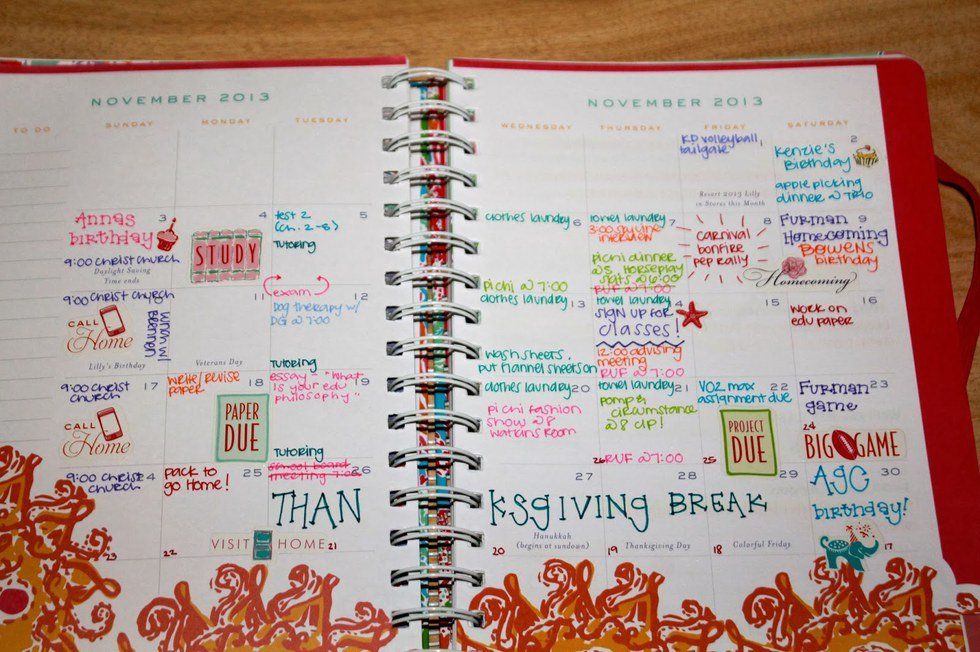 NOVEMBER 2013
TO DO
SUNDAY
MONDAY
TUESDAY
3
Annas
birthday
9:00 christ church
Daylight Saving
Time ends
4
STUDY
5
test 2
(ch. 2-8)
Tutoring
9:00 christ church
CALL
Home
Lunch w/
Brennen
Lilly's Birthday
11
Veterans Day
exam
12
Dog therapy w/
DG @ 7:00
Tutoring
9:00 christ
church
17
CALL
Home
write/revise
paper
18
PAPER
DUE
19
essay - "what
is your edu
philosophy"
Tutoring
9:00 christ
church
4
pack to
go Home!
25
school board
meeting 7:00
26
THAN
VISIT HOME
23
22
21
NOVEMBER 2013
WEDNESDAY
THURSDAY
FRIDAY
SATURDAY
KD volleyball,
tailgate
Resort 2013 Lilly
in Stores this Month
2
Kenzie's
Birthday
apple picking
dinner @ TRIO
clothes laundry
6
pi chi @ 7:00
towel laundry
7
3:00
interview
pi chi dinner
@5, Horseplay
skits @ 6:00
RUF @ 7:00
8
carnival
bonfire
pep rally
Homecoming
Furman
9
Homecoming
BOWENS
birthday
clothes laundry
13
wash sheets,
put flannel sheets on
towel laundry
4
sign up for
classes!
12:00 advising
meeting
RUF @ 7:00
15
16
work on
edu paper
clothes laundry
20
pi chi fashion
show @ 8
watkins room
towel laundry
21
pomp &
circumstance
@ 8 CLP!
RUF @ 7:00
26
VO2 max
22
assignment due
PROJECT
DUE
25
Furman
23
game
24
BIG GAME
27
28
29
30
KSGIVING BREAK
AGC
birthday!
Hanukkah
(begins at sundown)
Thanksgiving Day
Colorful Friday
20
19
18
17